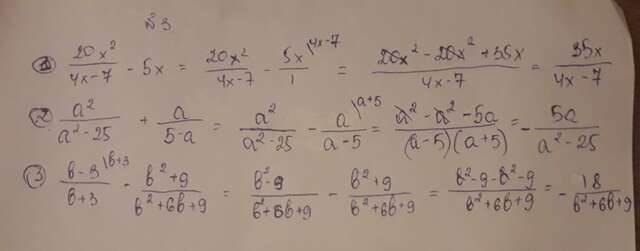 №3
① 20x²/(4x-7) - 5x = 20x²/(4x-7) - 5x/1 \4x-7 = (20x² - 20x² + 35x)/(4x-7) = 35x/(4x-7)
② a²/(a²-25) + a/(5-a) = a²/(a²-25) - a/(a-5) \a+5 = (a² - a² - 5a)/((a-5)(a+5)) = - 5a/(a²-25)
③ (в-3)/(в+3) \в+3 - (в²+9)/(в²+6в+9) = (в²-9)/(в²+6в+9) - (в²+9)/(в²+6в+9) = (в²-9-в²-9)/(в²+6в+9) = - 18/(в²+6в+9)